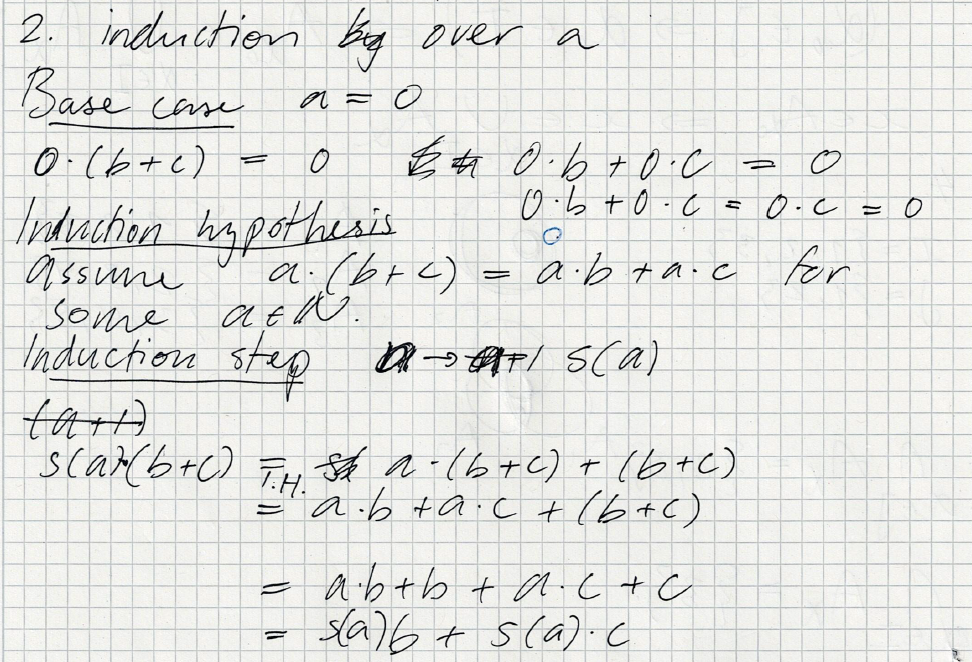 2. induction by over a
Base case a = 0
0·(b+c) = 0 0·b + 0·c = 0
0·b + 0·c = 0·c = 0
Induction hypothesis
assume a·(b+c) = a·b + a·c for
some a ∈ ℕ.
Induction step a → a+1 s(a)
(a+1)
s(a)·(b+c) = a·(b+c) + (b+c)
I.H.
= a·b + a·c + (b+c)
= a·b + b + a·c + c
= s(a)b + s(a)·c